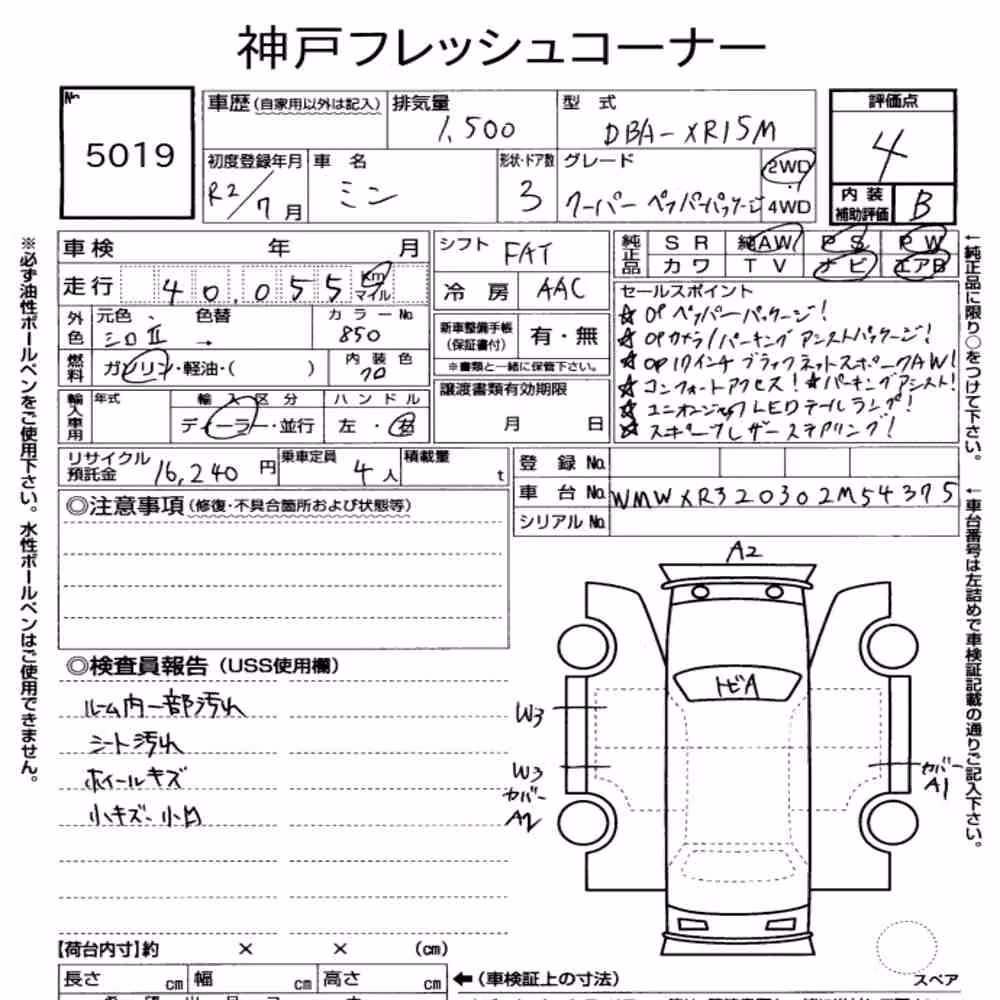 神戸フレッシュコーナー
No.
5019
車歴(自家用以外は記入)
排気量
1,500
型 式
DBA-XR15M
評価点
4
初度登録年月
R2/7月
車 名
ミニ
形状・ドア数
3
グレード
クーパー ペッパーパッケージ
2WD
・
4WD
内装
補助評価
B
車検 年 月
シフト FAT
純正品
SR 純AW PS PW
カワ TV ナビ エアB
走行 40,055 Km マイル
冷房 AAC
セールスポイント
☆ OPペッパーパッケージ!
☆ OPカメラ/パーキングアシストパッケージ!
☆ OP17インチブラックネットスポークAW!
☆ コンフォートアクセス! ☆パーキングアシスト!
☆ ユニオンジャックLEDテールランプ!
☆ スポーツレザーステアリング!
外色
元色 色替
シロⅡ →
カラーNo.
850
新車整備手帳
(保証書付)
有・無
※書類と一緒に保管下さい。
燃料
ガソリン・軽油・( )
内装色
クロ
譲渡書類有効期限
月 日
輸入車用
年式
輸入区分
ディーラー・並行
ハンドル
左・右
リサイクル
預託金
16,240円
乗車定員
4人
積載量
t
登録No.
車台No. WMWXR320302M54375
シリアルNo.
◎注意事項(修復・不具合箇所および状態等)
◎検査員報告(USS使用欄)
ルーム内一部汚れ
シート汚れ
ホイールキズ
小キズ、小凹
A2
トビA
W3
W3
カバー
A2
カバー
A1
スペア
【荷台内寸】約 × × (cm)
長さ cm 幅 cm 高さ cm
←(車検証上の寸法)
※必ず油性ボールペンをご使用下さい。水性ボールペンはご使用できません。
←純正品に限り○をつけて下さい。
←車台番号は左詰めで車検証記載の通りご記入下さい。